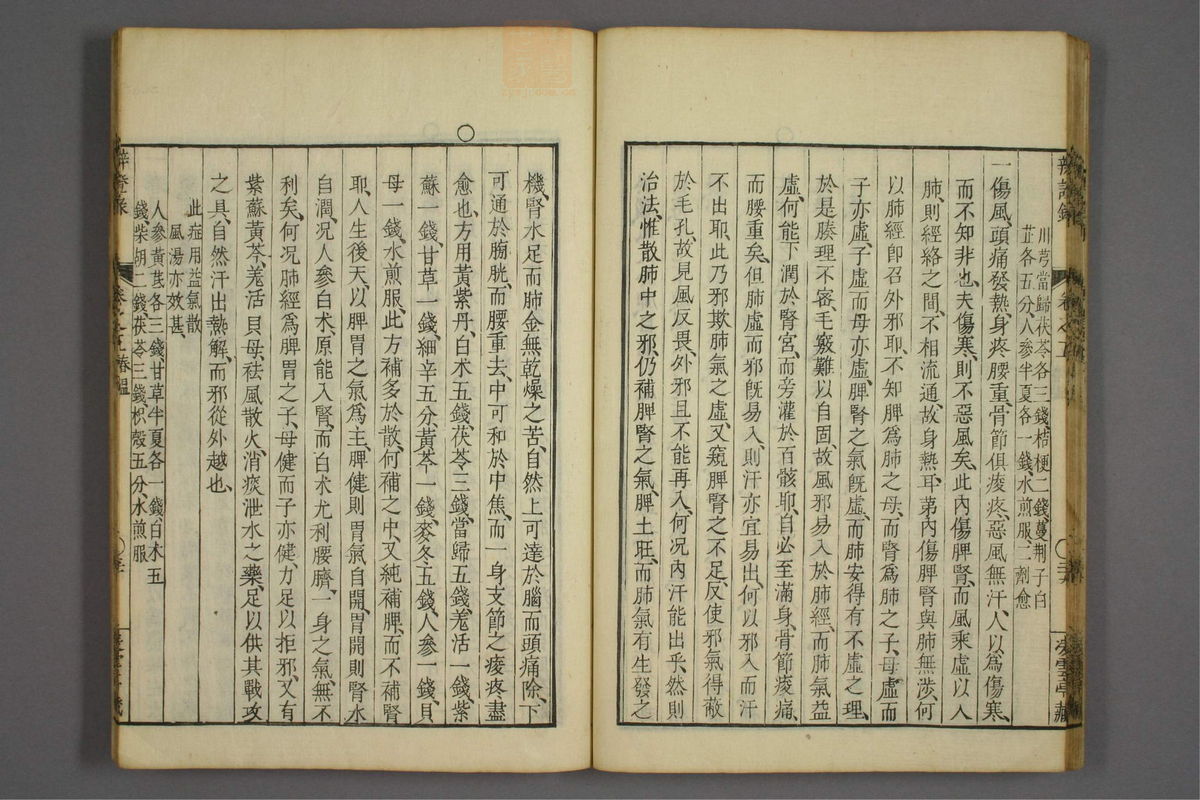 川芎當歸茯苓各三錢、桔梗二錢、蔓荆子白
芷各五分、人參半夏各一錢、水煎服、二劑愈
一傷風、頭痛發熱、身疼腰重、骨節俱痠疼、惡風無汗、人以爲傷寒、
而不知非也、夫傷寒、則不惡風矣、此內傷脾腎、而風乘虛以入
肺、則經絡之間、不相流通、故身熱耳、第內傷脾腎、與肺無涉、何
以肺經卽召外邪耶、不知脾爲肺之母、而腎爲肺之子、母虛而
子亦虛、子虛而母亦虛、脾腎之氣旣虛、而肺安得有不虛之理、
於是腠理不密、毛竅難以自固、故風邪易入於肺經、而肺氣益
虛、何能下潤於腎宮、而旁灌於百骸耶、自必至滿身骨節痠痛、
而腰重矣、但肺虛而邪旣易入、則汗亦宜易出、何以邪入而汗
不出耶、此乃邪欺肺氣之虛、又窺脾腎之不足、反使邪氣得蔽
於毛孔、故見風反畏、外邪且不能再入、何况內汗能出乎、然則
治法、惟散肺中之邪、仍補脾腎之氣、脾土旺、而肺氣有生發之
機、腎水足、而肺金無乾燥之苦、自然上可達於腦、而頭痛除、下
可通於膀胱、而腰重去、中可和於中焦、而一身支節之痠疼盡
愈也、方用黃紫丹、白术五錢、茯苓三錢、當歸五錢、羗活一錢、紫
蘇一錢、甘草一錢、細辛五分、黃芩一錢、麥冬五錢、人參一錢、貝
母一錢、水煎服、此方補多於散、何補之中、又純補脾、而不補腎
耶、人生後天、以脾胃之氣爲主、脾健則胃氣自開、胃開則腎水
自潤、况人參白术、原能入腎、而白术尤利腰臍、一身之氣、無不
利矣、何况肺經爲脾胃之子、母健而子亦健、力足以拒邪、又有
紫蘇黃芩羗活貝母、祛風散火、消痰泄水之藥、足以供其戰攻
之具、自然汗出熱解、而邪從外越也、
此症用益氣散
風湯亦效甚、
人參黃芪各三錢、甘草半夏各一錢、白术五
錢、柴胡二錢、茯苓三錢、枳殼五分、水煎服